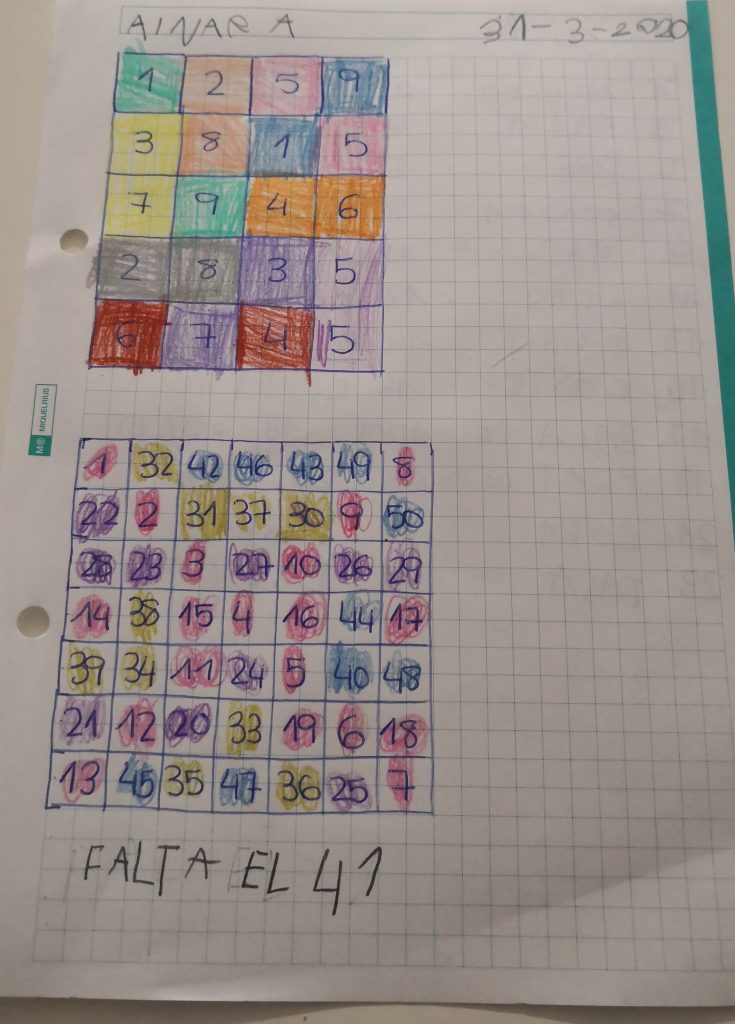 AINAR A 31-3-2020
1 2 5 9
3 8 1 5
7 9 4 6
2 8 3 5
6 7 4 5
MIQUELRIUS
1 32 42 46 43 49 8
22 2 31 37 30 9 50
28 23 3 27 10 26 29
14 38 15 4 16 44 17
39 34 11 24 5 40 48
21 12 20 33 19 6 18
13 45 35 47 36 25 7
FALTA EL 41